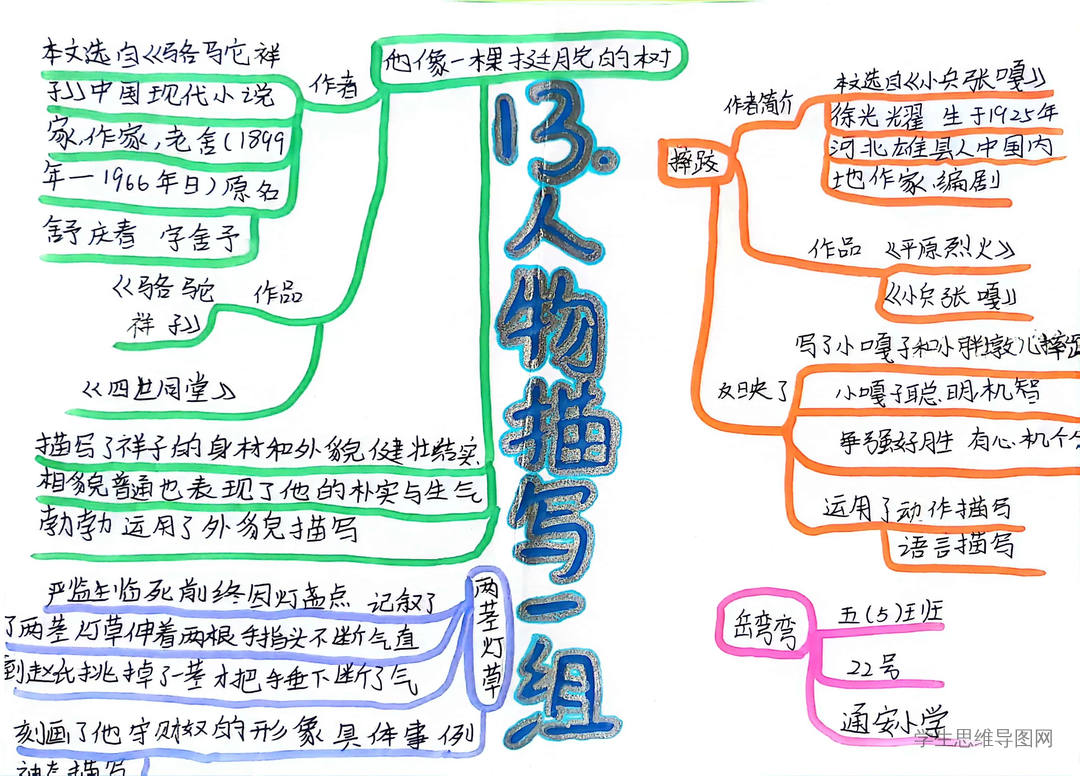 13.人物描写一组
他像一棵挺脱的树
作者
本文选自《骆驼祥
子》中国现代小说
家,作家,老舍(1899
年一1966年日)原名
舒庆春 字舍予
作品
《骆驼
祥子》
《四世同堂》
描写了祥子的身材和外貌健壮结实
相貌普通也表现了他的朴实与生气
勃勃运用了外貌描写
两茎灯草
严监生临死前终因灯盏点 记叙了
了两茎灯草伸着两根手指头不断气直
到赵氏挑掉了一茎才把手垂下断了气
刻画了他守财奴的形象具体事例
神态描写
摔跤
作者简介
本文选自《小兵张嘎》
徐光耀 生于1925年
河北雄县人中国内
地作家、编剧
作品 《平原烈火》
《小兵张嘎》
反映了
写了小嘎子和小胖墩儿摔跤
小嘎子聪明机智
争强好胜 有心机个
运用了动作描写
语言描写
岳弯弯
五(5)班
22号
通安小学
学生思维导图网